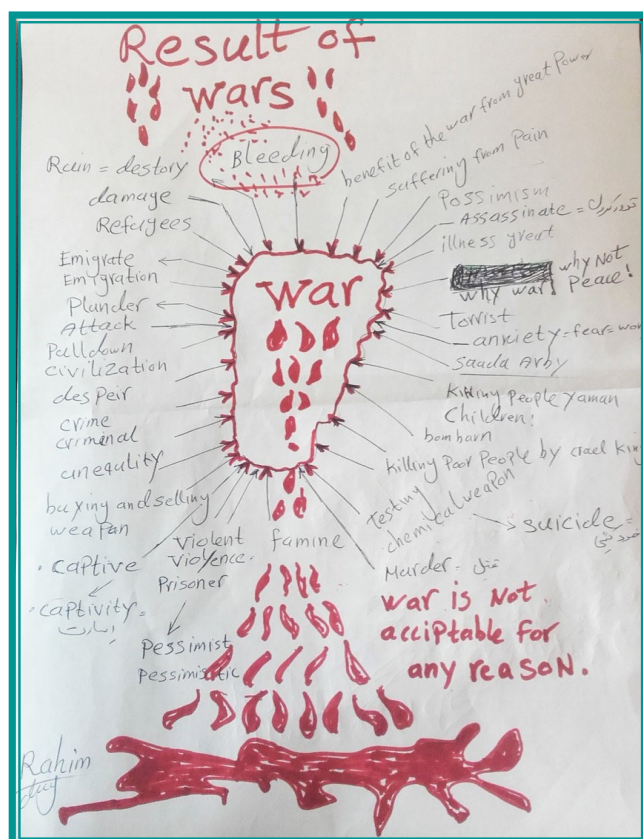 Result of
wars
Bleeding
Ruin = destory
damage
Refugees
Emigrate
Emigration
Plander
Attack
Pulldown
civilization
despeir
crime
criminal
unequlity
buxing and selling
weapan
captive
captivity =
اسارت
Violent
Violence =
Prisoner
Pessimist
Pessimistic
famine
war
benefit of the war from great Power
suffering from Pain
Possimism
Assassinate =
illness great
why Not
why war! Peace!
Torrist
anxiety = fear = wor
Saada Arby
Killing People Yaman
Children!
bombarn
Killing Poor People by crael Kin
Testing
chemical weapon
suicide =
Murder = قتل
war is Not.
acciptable for
any reason.
Rahim